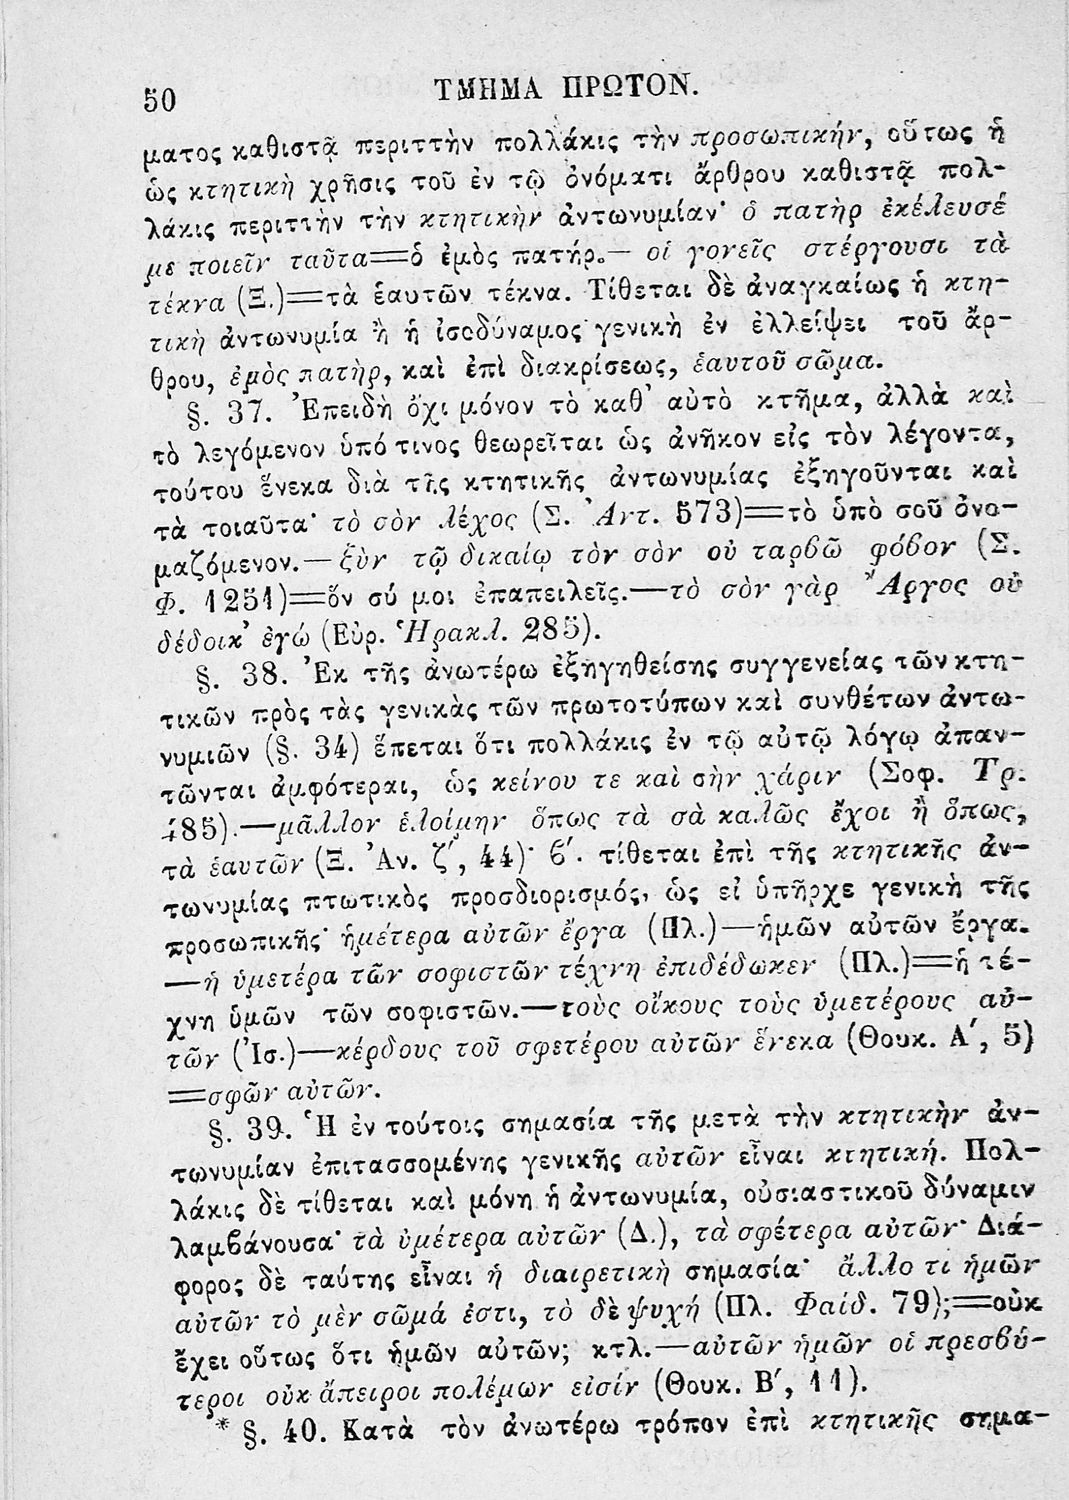 50
ΤΜΗΜΑ ΠΡΩΤΟΝ.
ματος καθιστᾷ περιττὴν πολλάκις τὴν προσωπικήν, οὕτως ἡ
ὡς κτητικὴ χρῆσις τοῦ ἐν τῷ ὀνόματι ἄρθρου καθιστᾷ πολ-
λάκις περιττὴν τὴν κτητικὴν ἀντωνυμίαν· ὁ πατὴρ ἐκέλευσέ
με ποιεῖν ταῦτα=ὁ ἐμὸς πατήρ.— οἱ γονεῖς στέργουσι τὰ
τέκνα (Ξ.)=τὰ ἑαυτῶν τέκνα. Τίθεται δὲ ἀναγκαίως ἡ κτη-
τικὴ ἀντωνυμία ἢ ἡ ἰσοδύναμος γενικὴ ἐν ἐλλείψει τοῦ ἄρ-
θρου, ἐμὸς πατὴρ, καὶ ἐπὶ διακρίσεως, ἑαυτοῦ σῶμα.
§. 37. Ἐπειδὴ ὄχι μόνον τὸ καθ' αὑτὸ κτῆμα, ἀλλὰ καὶ
τὸ λεγόμενον ὑπό τινος θεωρεῖται ὡς ἀνῆκον εἰς τὸν λέγοντα,
τούτου ἕνεκα διὰ τῆς κτητικῆς ἀντωνυμίας ἐξηγοῦνται καὶ
τὰ τοιαῦτα· τὸ σὸν λέχος (Σ. Ἀντ. 573)=τὸ ὑπὸ σοῦ ὀνο-
μαζόμενον.—ξὺν τῷ δικαίῳ τὸν σὸν οὐ ταρβῶ φόβον (Σ.
Φ. 1251)=ὅν σύ μοι ἐπαπειλεῖς.—τὸ σὸν γὰρ Ἄργος οὐ
δέδοικ' ἐγώ (Εὐρ. Ἡρακλ. 285).
§. 38. Ἐκ τῆς ἀνωτέρω ἐξηγηθείσης συγγενείας τῶν κτη-
τικῶν πρὸς τὰς γενικὰς τῶν πρωτοτύπων καὶ συνθέτων ἀντω-
νυμιῶν (§. 34) ἕπεται ὅτι πολλάκις ἐν τῷ αὐτῷ λόγῳ ἀπαν-
τῶνται ἀμφότεραι, ὡς κείνου τε καὶ σὴν χάριν (Σοφ. Τρ.
485).—μᾶλλον ἑλοίμην ὅπως τὰ σὰ καλῶς ἔχοι ἢ ὅπως,
τὰ ἑαυτῶν (Ξ. Ἀν. ζ', 44)· ϐ'. τίθεται ἐπὶ τῆς κτητικῆς ἀν-
τωνυμίας πτωτικὸς προσδιορισμός, ὡς εἰ ὑπῆρχε γενικὴ τῆς
προσωπικῆς· ἡμέτερα αὐτῶν ἔργα (Πλ.)—ἡμῶν αὐτῶν ἔργα.
—ἡ ὑμετέρα τῶν σοφιστῶν τέχνη ἐπιδέδωκεν (Πλ.)=ἡ τέ-
χνη ὑμῶν τῶν σοφιστῶν.—τοὺς οἴκους τοὺς ὑμετέρους αὐ-
τῶν (Ἰσ.)—κέρδους τοῦ σφετέρου αὐτῶν ἕνεκα (Θουκ. Α', 5)
=σφῶν αὐτῶν.
§. 39. Ἡ ἐν τούτοις σημασία τῆς μετὰ τὴν κτητικὴν ἀν-
τωνυμίαν ἐπιτασσομένης γενικῆς αὐτῶν εἶναι κτητική. Πολ-
λάκις δὲ τίθεται καὶ μόνη ἡ ἀντωνυμία, οὐσιαστικοῦ δύναμιν
λαμϐάνουσα· τὰ ὑμέτερα αὐτῶν (Δ.), τὰ σφέτερα αὐτῶν· Διά-
φορος δὲ ταύτης εἶναι ἡ διαιρετικὴ σημασία· ἄλλο τι ἡμῶν
αὐτῶν τὸ μὲν σῶμά ἐστι, τὸ δὲ ψυχή (Πλ. Φαίδ. 79);=οὐκ
ἔχει οὕτως ὅτι ἡμῶν αὐτῶν; κτλ.—αὐτῶν ἡμῶν οἱ πρεσϐύ-
τεροι οὐκ ἄπειροι πολέμων εἰσίν (Θουκ. Β', 11).
* §. 40. Κατὰ τὸν ἀνωτέρω τρόπον ἐπὶ κτητικῆς σημα-